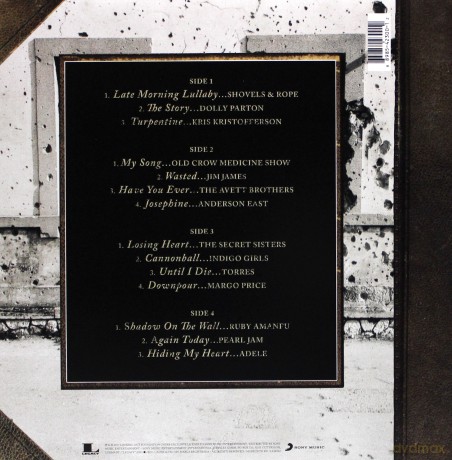 SIDE 1
1. Late Morning Lullaby...SHOVELS & ROPE
2. The Story...DOLLY PARTON
3. Turpentine...KRIS KRISTOFFERSON
SIDE 2
1. My Song...OLD CROW MEDICINE SHOW
2. Wasted...JIM JAMES
3. Have You Ever...THE AVETT BROTHERS
4. Josephine...ANDERSON EAST
SIDE 3
1. Losing Heart...THE SECRET SISTERS
2. Cannonball...INDIGO GIRLS
3. Until I Die...TORRES
4. Downpour...MARGO PRICE
SIDE 4
1. Shadow On The Wall...RUBY AMANFU
2. Again Today...PEARL JAM
3. Hiding My Heart...ADELE
LEGACY
SONY MUSIC
dvdmax